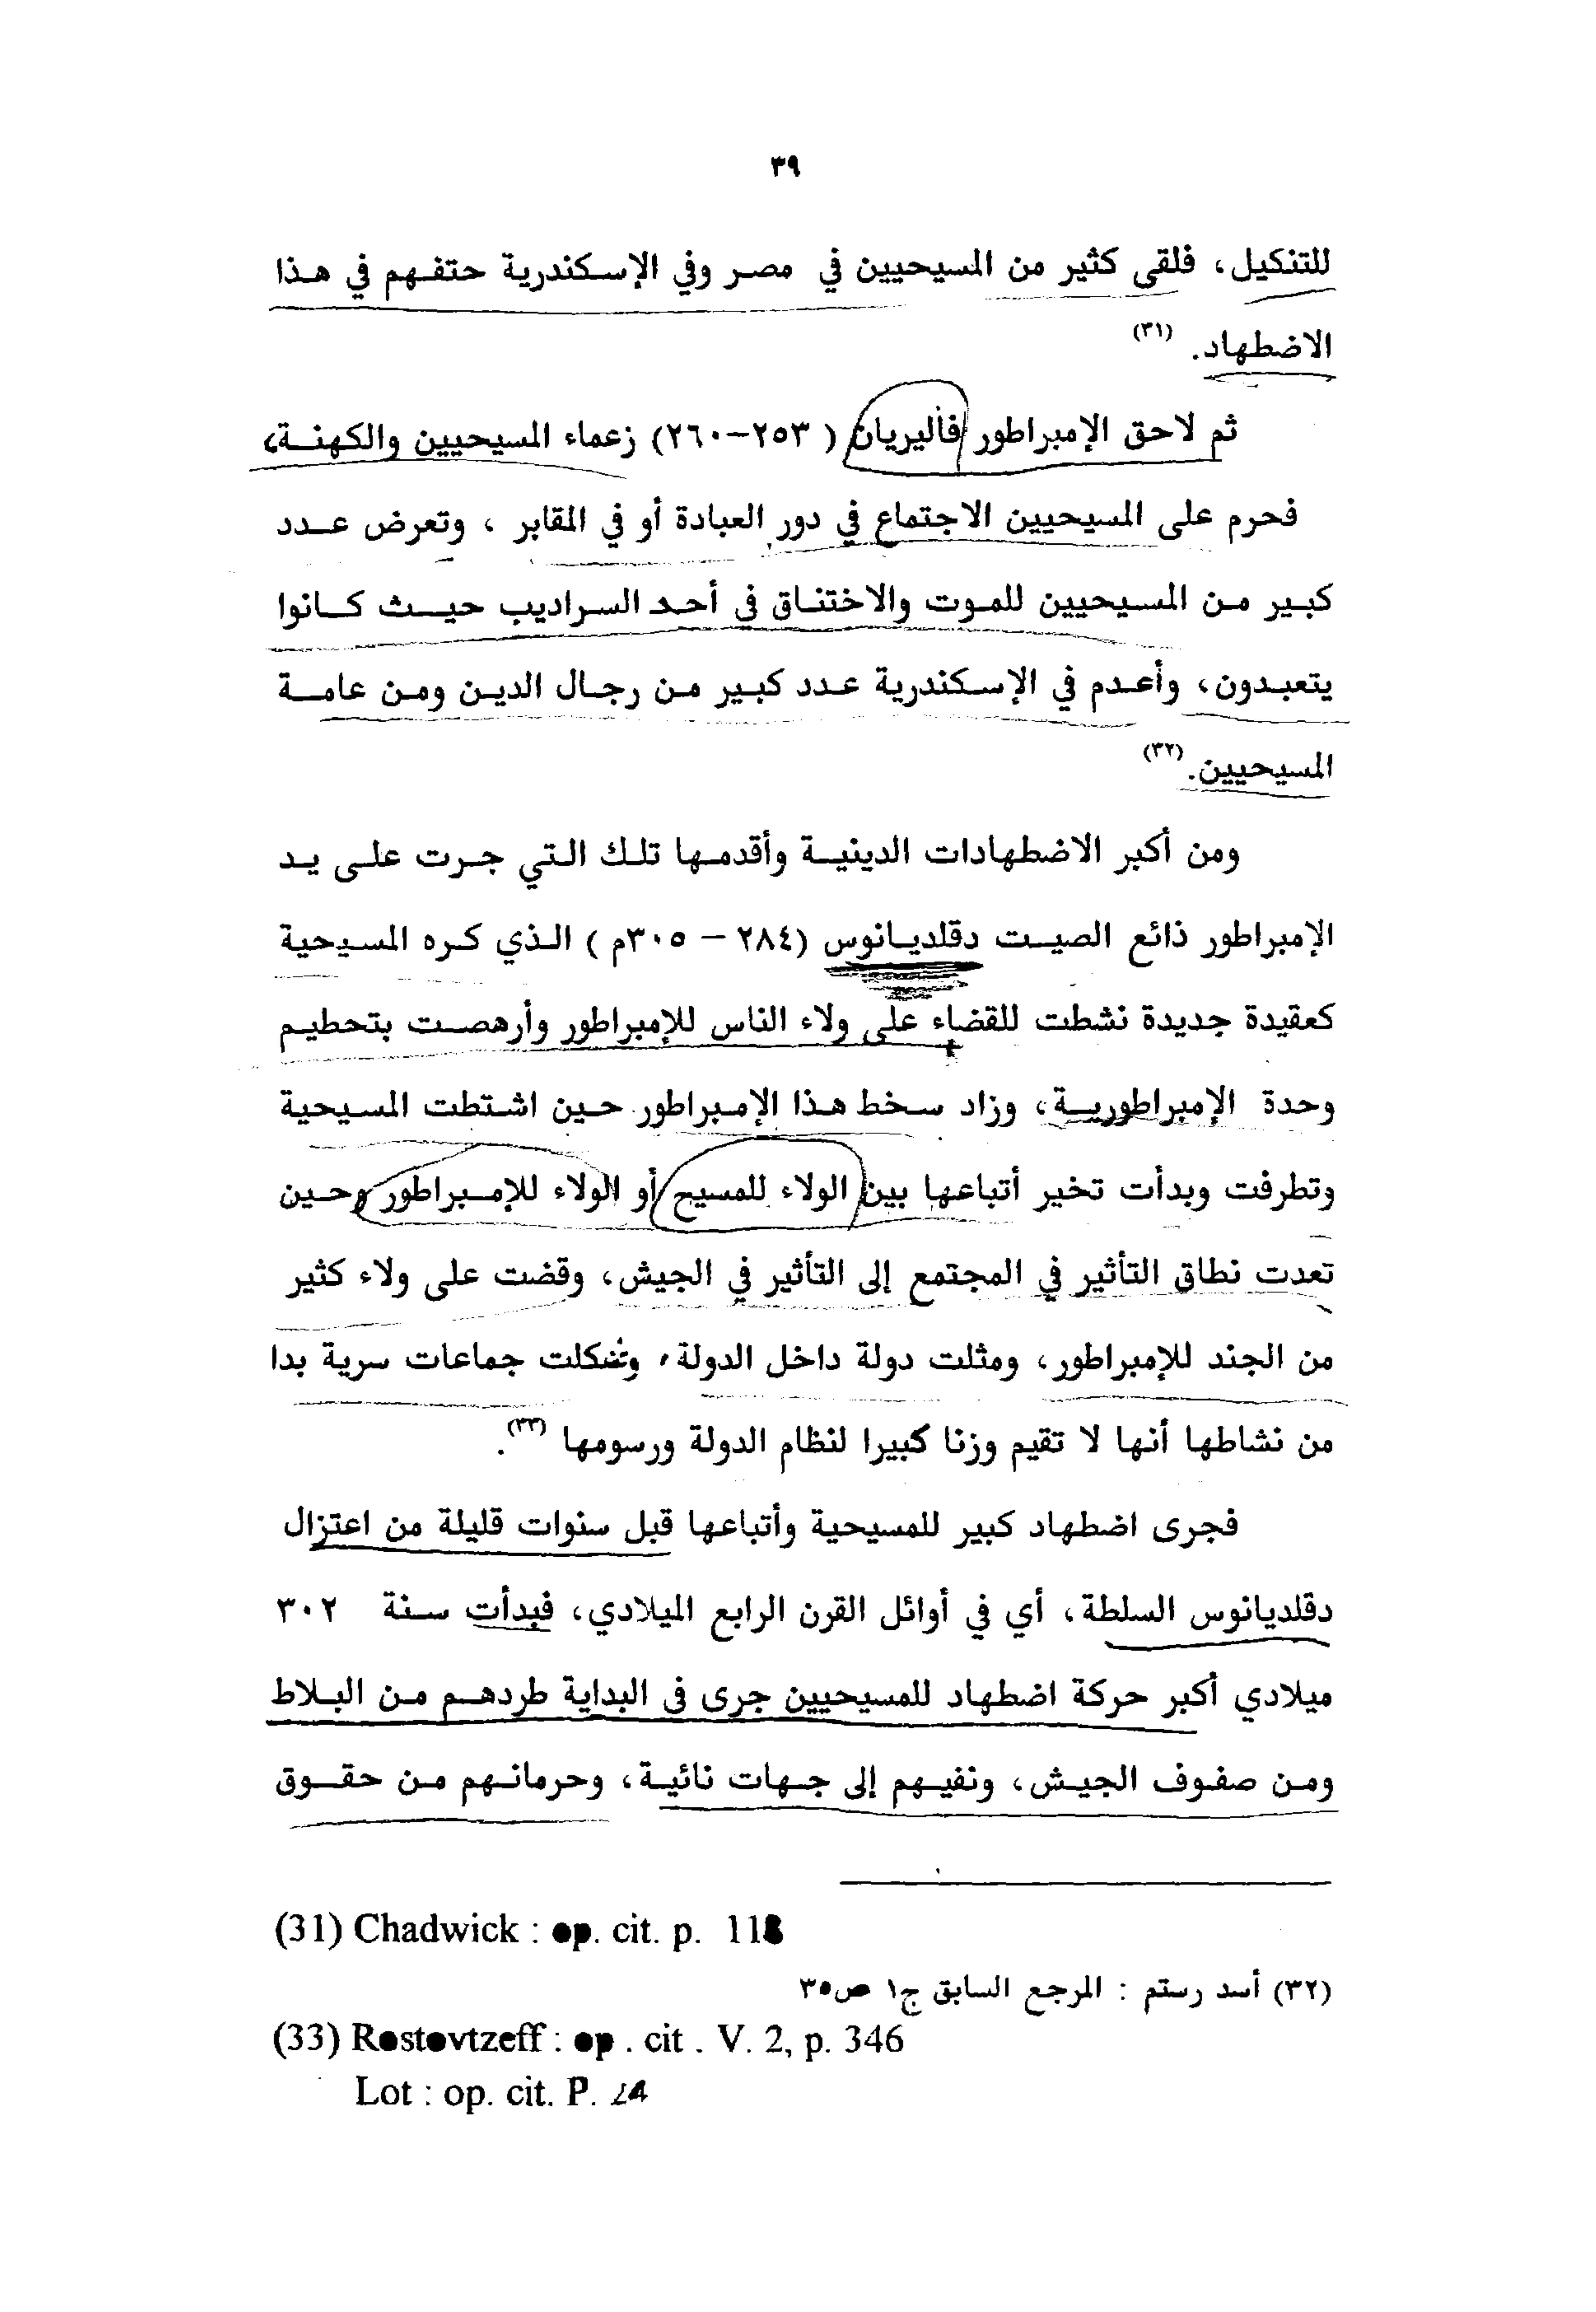 ٣٩
للتنكيل، فلقى كثير من المسيحيين في مصر وفي الإسكندرية حتفهم في هذا
الاضطهاد. (٣١)
ثم لاحق الإمبراطور فاليريان (٢٥٣-٢٦٠) زعماء المسيحيين والكهنة،
فحرم على المسيحيين الاجتماع في دور العبادة أو في المقابر ، وتعرض عدد
كبير من المسيحيين للموت والاختناق في أحد السراديب حيث كانوا
يتعبدون، وأعدم في الإسكندرية عدد كبير من رجال الدين ومن عامة
المسيحيين. (٣٢)
ومن أكبر الاضطهادات الدينية وأقدمها تلك التي جرت على يد
الإمبراطور ذائع الصيت دقلديانوس (٢٨٤ – ٣٠٥م ) الذي كره المسيحية
كعقيدة جديدة نشطت للقضاء على ولاء الناس للإمبراطور وأرهصت بتحطيم
وحدة الإمبراطورية، وزاد سخط هذا الإمبراطور حين اشتطت المسيحية
وتطرفت وبدأت تخير أتباعها بين الولاء للمسيح أو الولاء للإمبراطور وحين
تعدت نطاق التأثير في المجتمع إلى التأثير في الجيش، وقضت على ولاء كثير
من الجند للإمبراطور، ومثلت دولة داخل الدولة، وشكلت جماعات سرية بدا
من نشاطها أنها لا تقيم وزنا كبيرا لنظام الدولة ورسومها (٣٣).
فجرى اضطهاد كبير للمسيحية وأتباعها قبل سنوات قليلة من اعتزال
دقلديانوس السلطة، أي في أوائل القرن الرابع الميلادي، فبدأت سنة ٣٠٢
ميلادي أكبر حركة اضطهاد للمسيحيين جرى فى البداية طردهم من البلاط
ومن صفوف الجيش، ونفيهم إلى جهات نائية، وحرمانهم من حقوق
(31) Chadwick : op. cit. p. 118
(٣٢) أسد رستم : المرجع السابق ج١ ص٣٥
(33) Rostovtzeff : op . cit . V. 2, p. 346
Lot : op. cit. P.